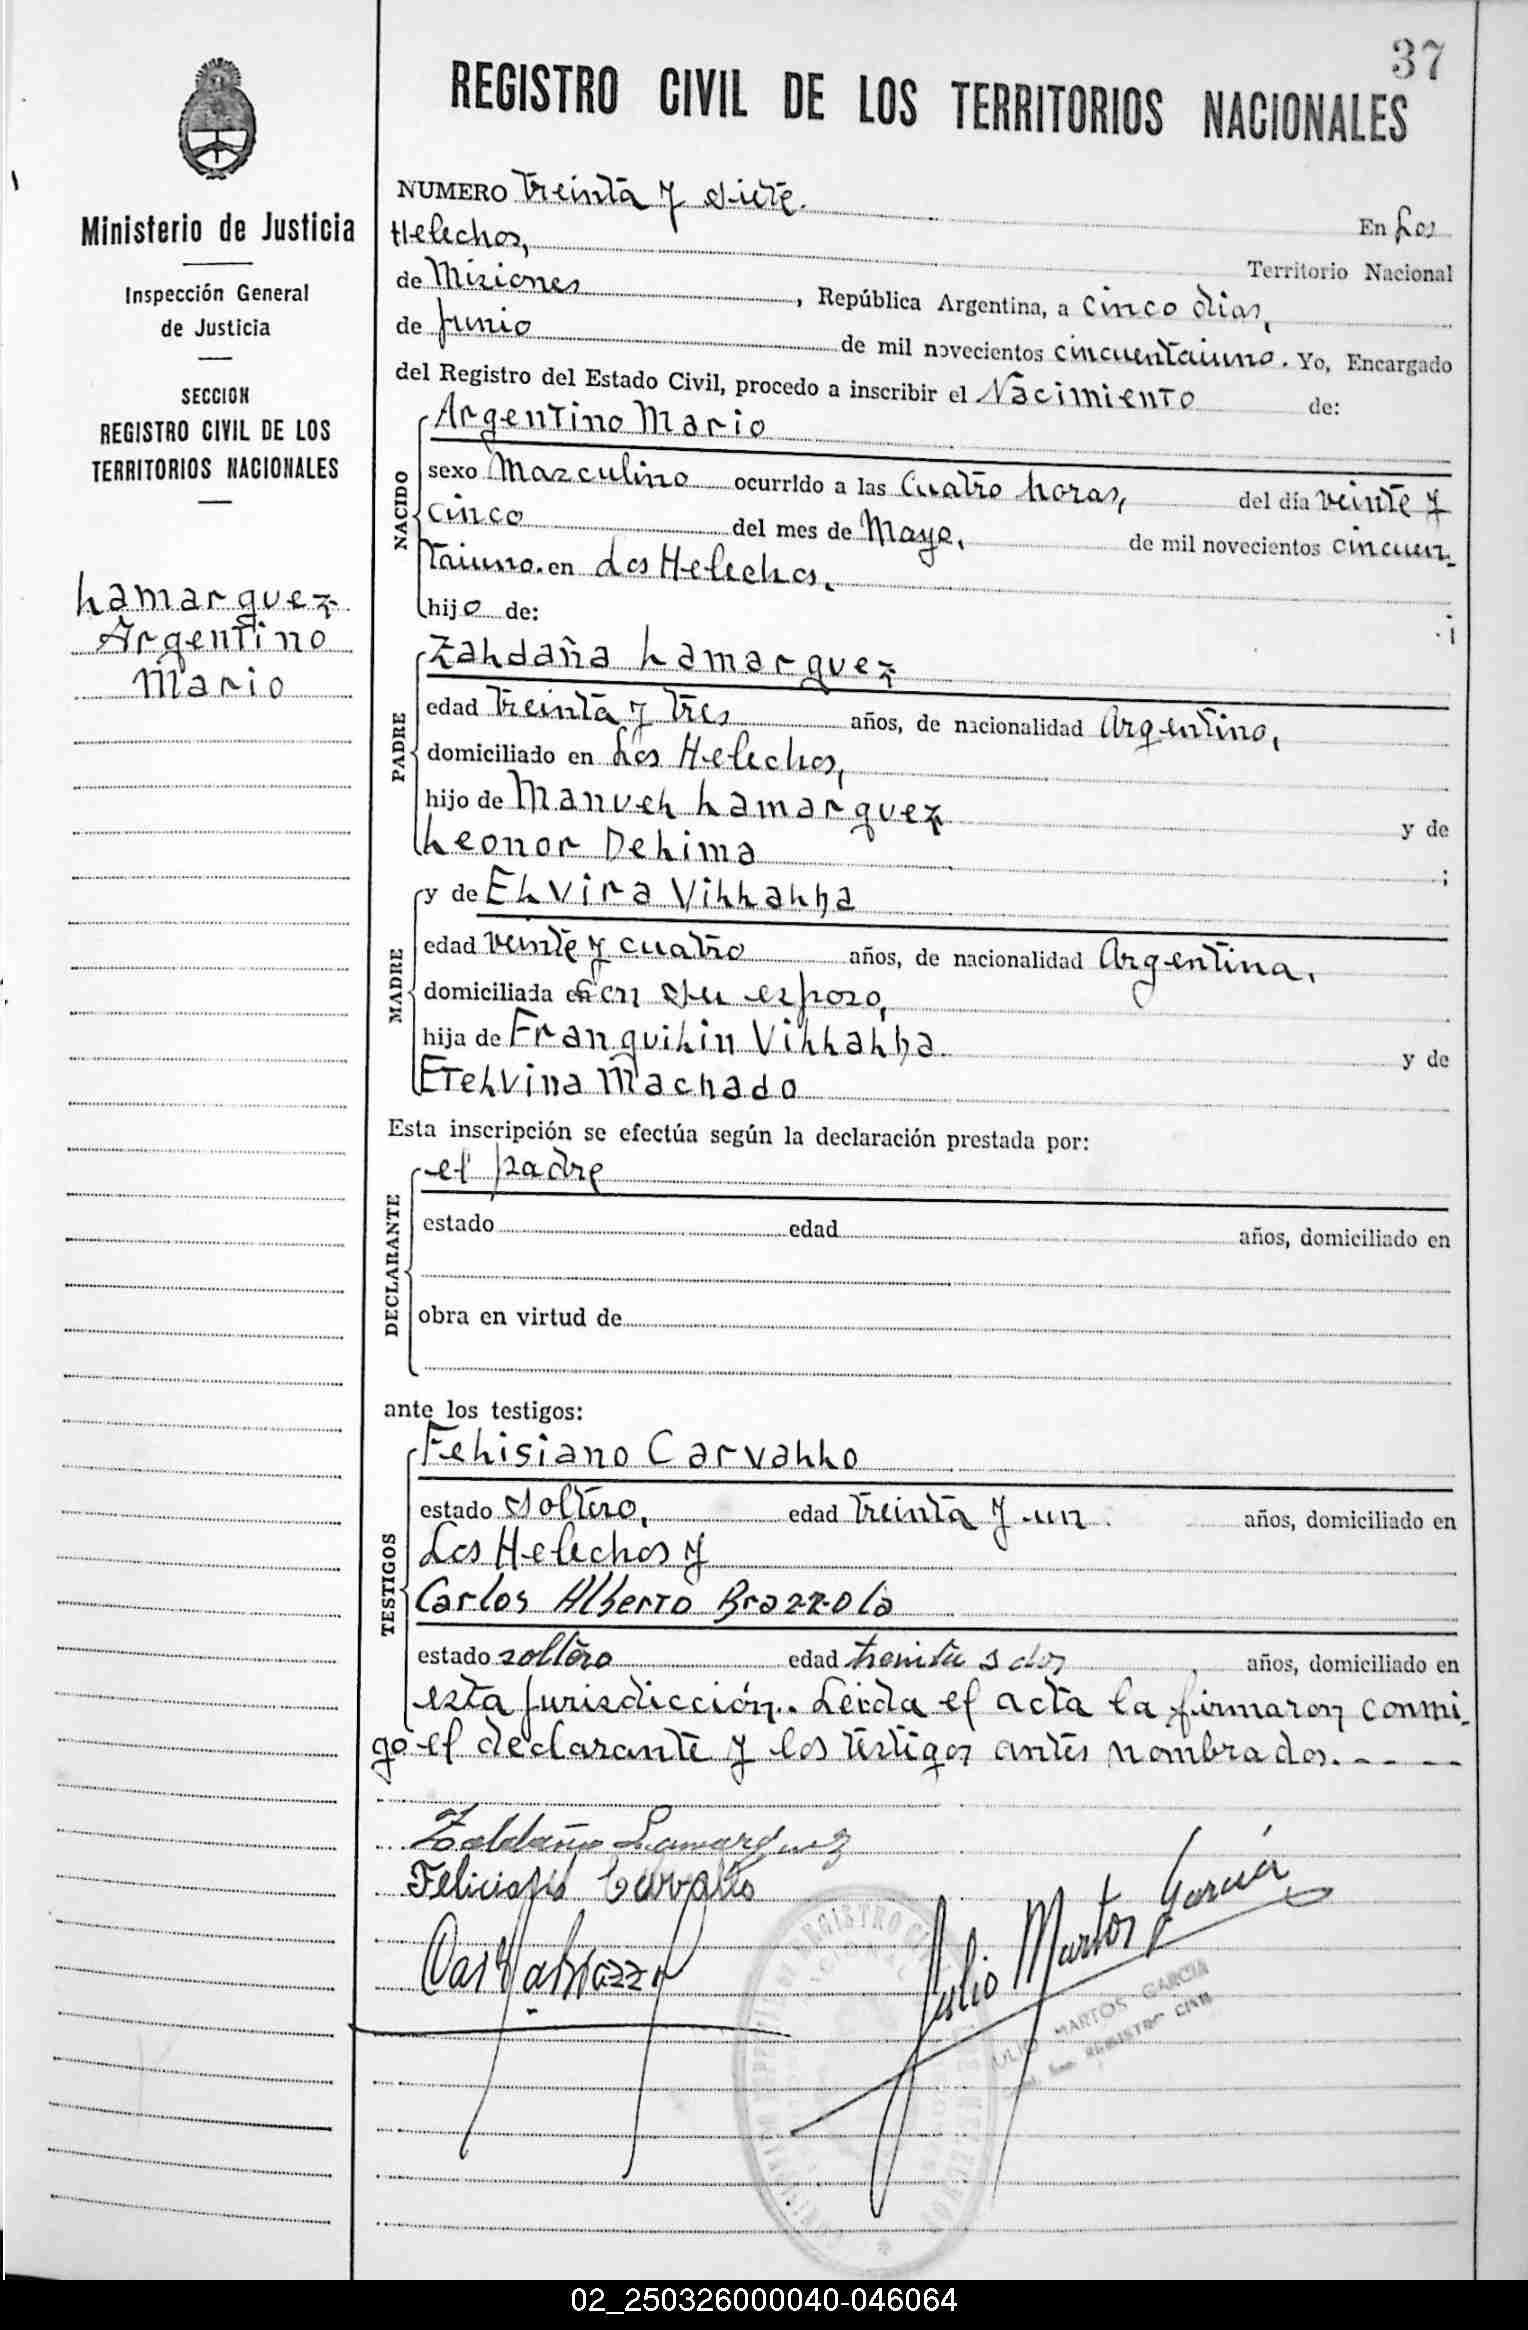 37
REGISTRO CIVIL DE LOS TERRITORIOS NACIONALES
Ministerio de Justicia
Inspección General
de Justicia
SECCION
REGISTRO CIVIL DE LOS
TERRITORIOS NACIONALES
Lamarquez
Argentino
Mario
NUMERO treinta y siete. En Los
Helechos, Territorio Nacional
de Misiones, República Argentina, a cinco dias,
de Junio de mil novecientos cincuentaiuno. Yo, Encargado
del Registro del Estado Civil, procedo a inscribir el Nacimiento de:
NACIDO
Argentino Mario
sexo Masculino ocurrido a las Cuatro horas, del día veinte y
cinco del mes de Mayo, de mil novecientos cincuen-
taiuno. en Los Helechos,
hijo de: ;
PADRE
Zaldaña Lamarquez
edad treinta y tres años, de nacionalidad Argentino,
domiciliado en Los Helechos,
hijo de Manuel Lamarquez y de
Leonor Delima ;
MADRE
y de Elvira Villalba
edad veinte y cuatro años, de nacionalidad Argentina,
domiciliada en con su esposo,
hija de Franquilin Villalba. y de
Etelvina Machado
Esta inscripción se efectúa según la declaración prestada por:
DECLARANTE
el padre
estado edad años, domiciliado en
obra en virtud de
ante los testigos:
TESTIGOS
Felisiano Carvallo
estado soltero, edad treinta y un años, domiciliado en
Los Helechos y
Carlos Alberto Brazzola
estado soltero edad treinta y dos años, domiciliado en
esta jurisdicción. Leida el acta la firmaron conmi-
go el declarante y los testigos antes nombrados. - - - -
Zaldaña Lamarquez
Feliciano Carvallo
Julio Martos Garcia
JULIO MARTOS GARCIA
REGISTRO CIVIL
02_250326000040-046064